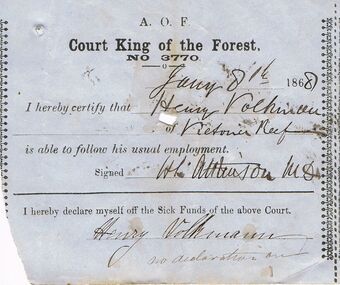 A. O. F.
Court King of the Forest.
NO 3770.
Jany 8th 1868
I hereby certify that Henry Volkmann
of Victoria Reef
is able to follow his usual employment.
Signed Atkinson MD
I hereby declare myself off the Sick Funds of the above Court.
Henry Volkmann
no declaration on